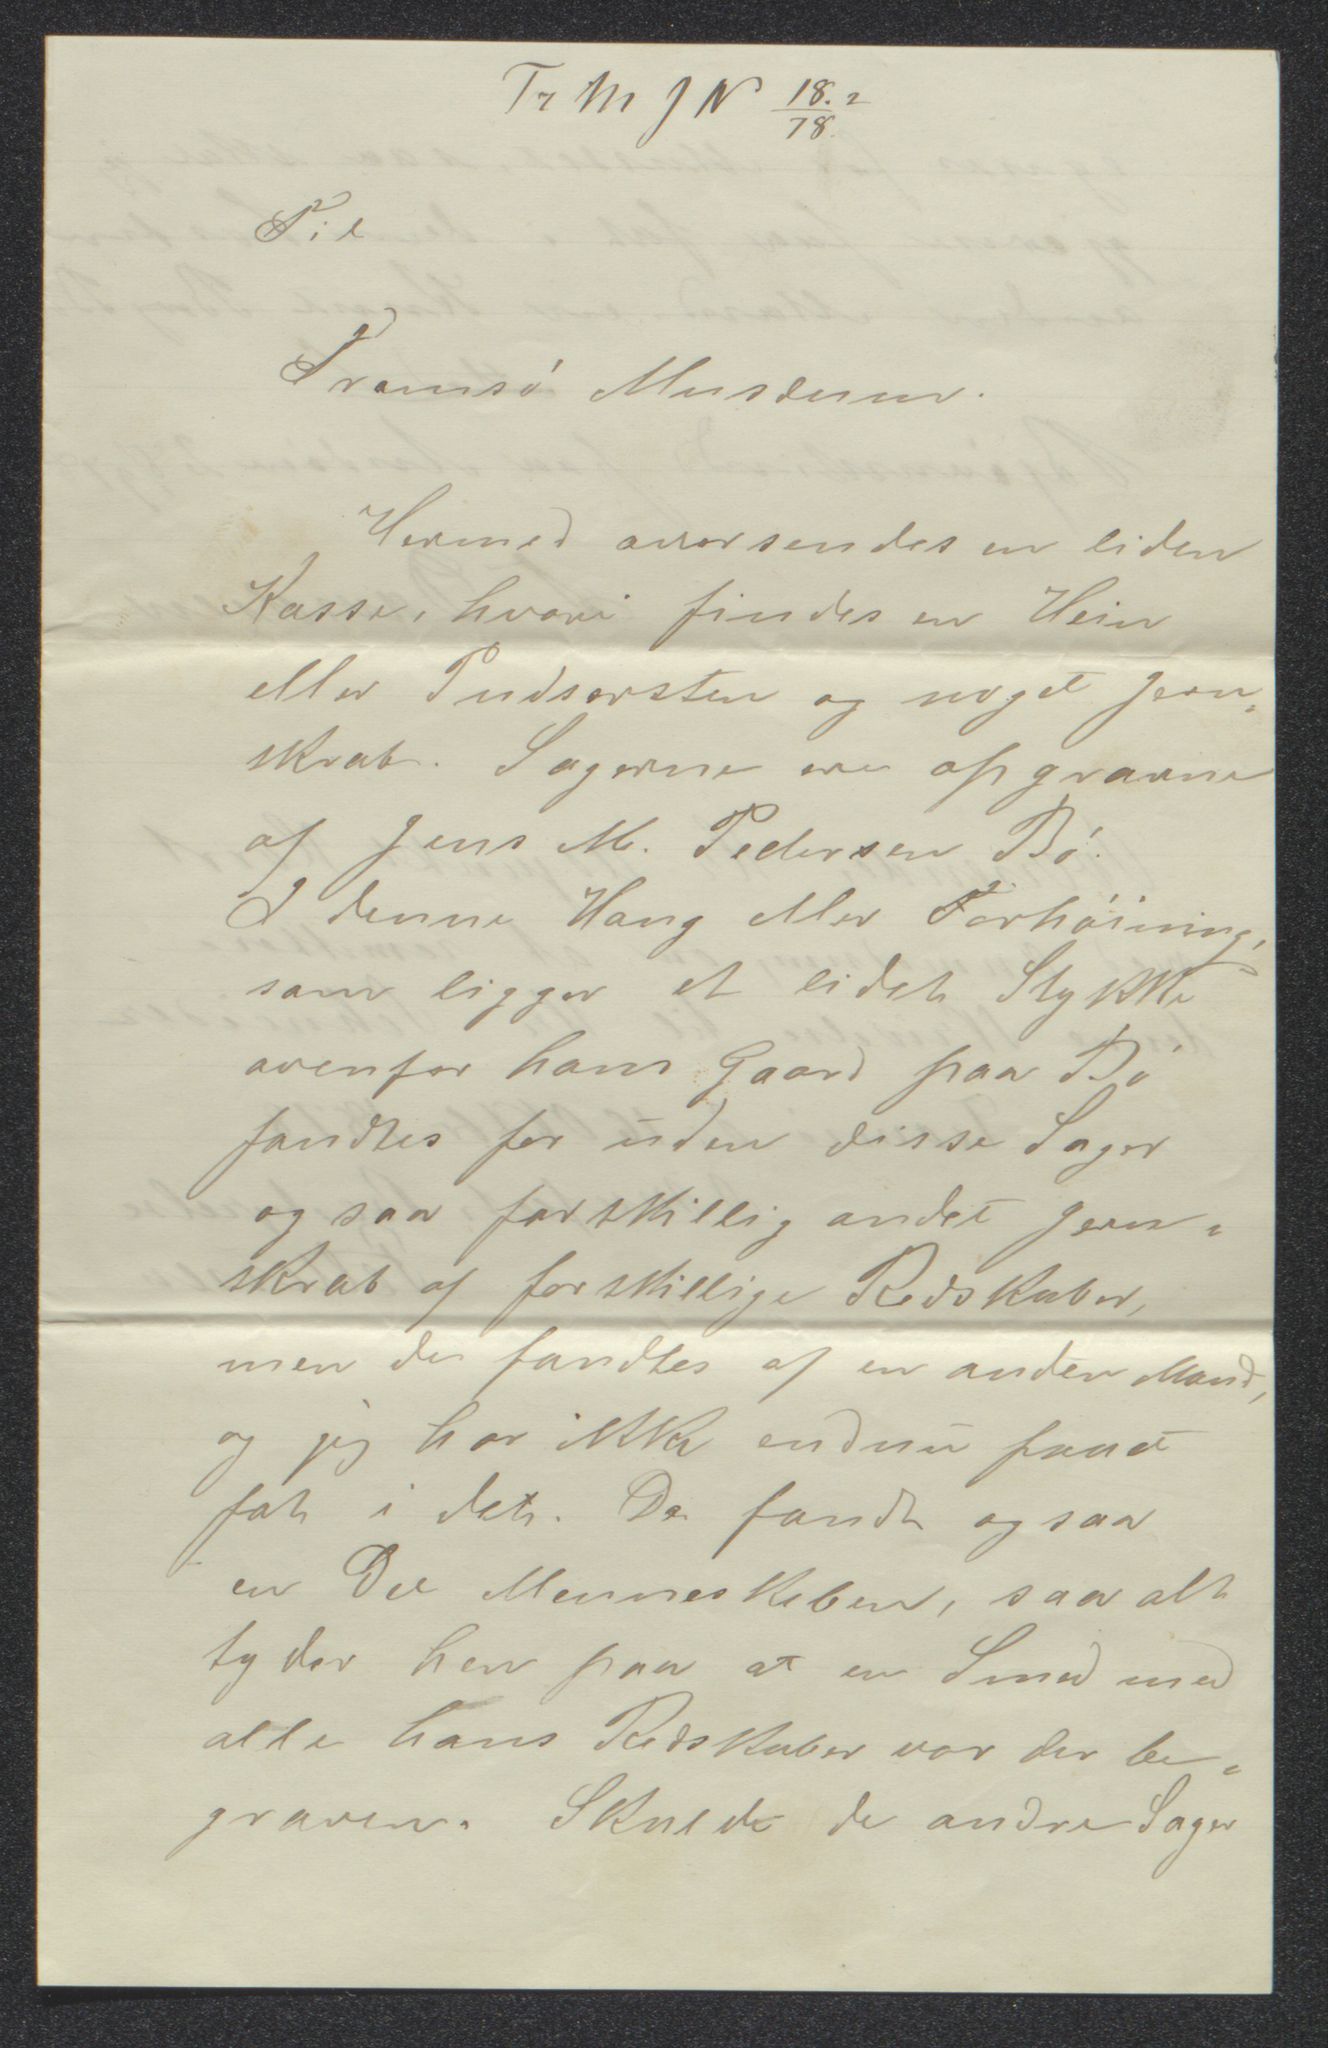 Tr M J N 18.2/78.
Til
Tromsö Museum.
Hermed oversendes en liden
Kasse, hvori findes en Hein
eller Pudsersten og noget Jern-
skrab. Sagerne ere opgravne
af Jens M. Pedersen Bö.
I denne Haug eller Forhöining,
som ligger et lidet Stykke
ovenfor hans Gaard paa Bö
fandtes for uden disse Sager
ogsaa forskillig andet Jern-
skrab af forskillige Redskaber,
men de fandtes af en anden Mand,
og jeg har ikke endnu faaet
fat i det. De fandt ogsaa
en Del Menneskeben, saa alt
tyder hen paa at en Smed med
alle hans Redskaber var der be-
graven. Skulde de andre Sager